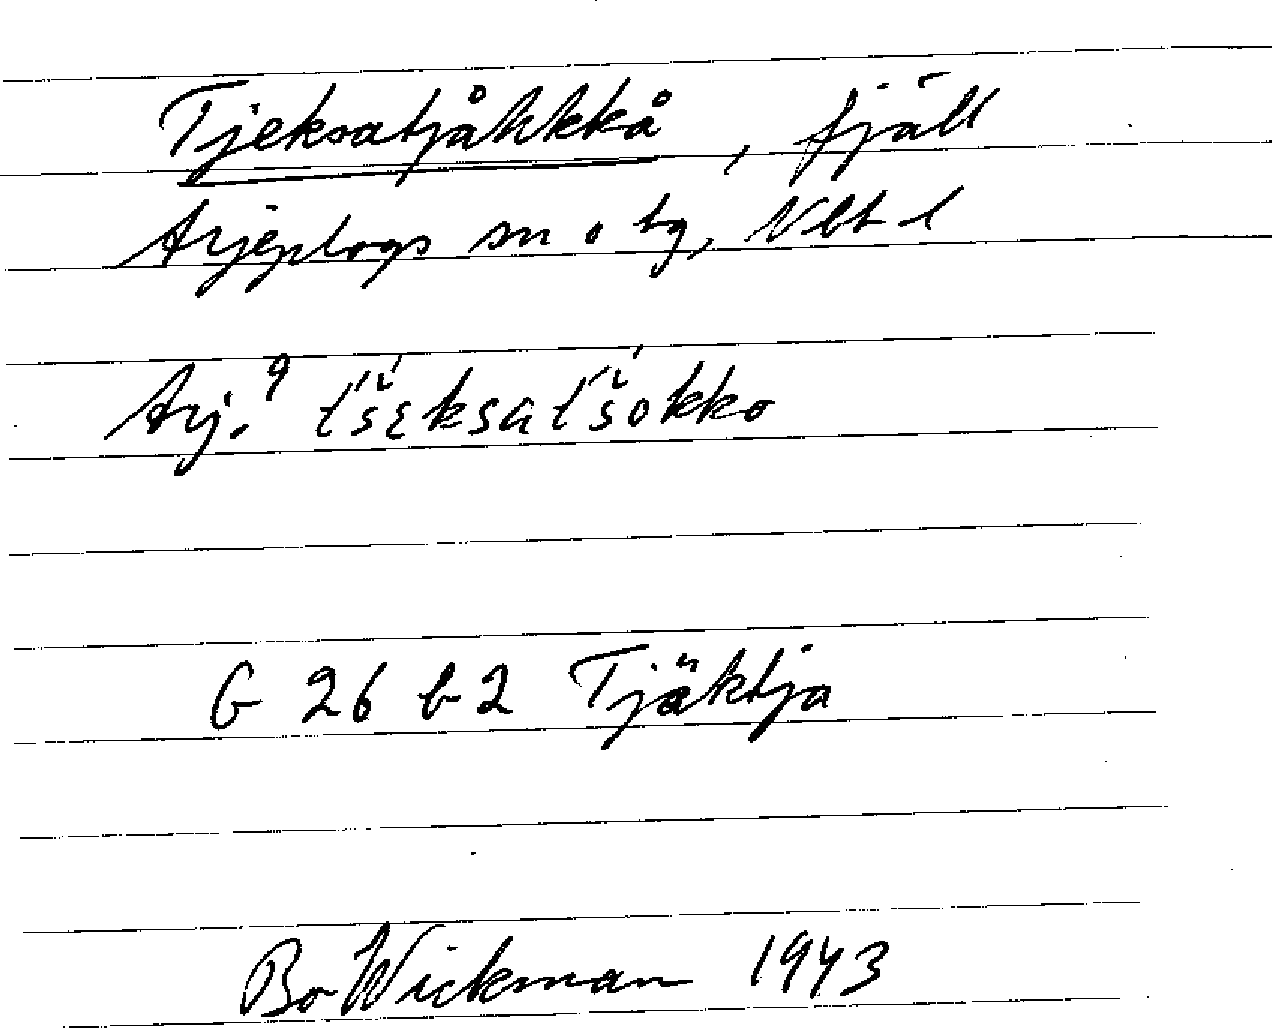 Tjeksatjåhkkå, fjäll
Arjeplogs sn o tg, Vbt l
Arj.9 t́š́ɛksat́š́okko
G 26 b 2 Tjäktja
Bo Wickman 1943